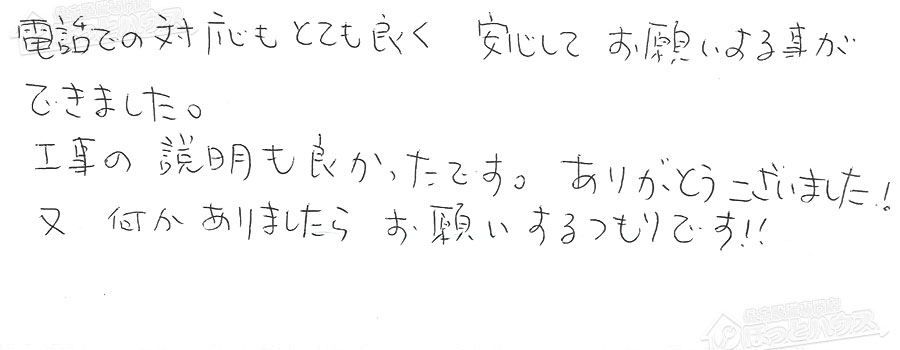 電話での対応もとても良く 安心して お願いする事が
できました。
工事の 説明も良かったです。 ありがとうございました!
又 何か ありましたら お願いするつもりです!!
住宅設備専門店
ほっとハウス